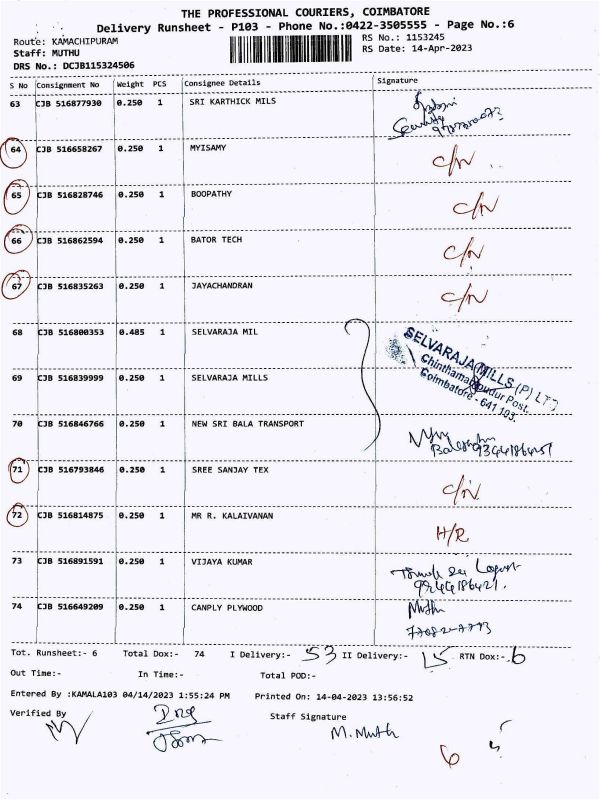 THE PROFESSIONAL COURIERS, COIMBATORE
Delivery Runsheet - P103 - Phone No.:0422-3505555 - Page No.:6
Route: KAMACHIPURAM RS No.: 1153245
Staff: MUTHU RS Date: 14-Apr-2023
DRS No.: DCJB115324506
S No Consignment No Weight PCS Consignee Details Signature
63 CJB 516877930 0.250 1 SRI KARTHICK MILS
Security
64 CJB 516658267 0.250 1 MYISAMY C/N
65 CJB 516828746 0.250 1 BOOPATHY C/N
66 CJB 516862594 0.250 1 BATOR TECH C/N
67 CJB 516835263 0.250 1 JAYACHANDRAN C/N
68 CJB 516800353 0.485 1 SELVARAJA MIL
SELVARAJA MILLS (P) LTD
Chinthamanipudur Post.
Coimbatore - 641 103.
69 CJB 516839999 0.250 1 SELVARAJA MILLS
70 CJB 516846766 0.250 1 NEW SRI BALA TRANSPORT
71 CJB 516793846 0.250 1 SREE SANJAY TEX C/N
72 CJB 516814875 0.250 1 MR R. KALAIVANAN H/R
73 CJB 516891591 0.250 1 VIJAYA KUMAR
74 CJB 516649209 0.250 1 CANPLY PLYWOOD Muthu
Tot. Runsheet:- 6 Total Dox:- 74 I Delivery:- 53 II Delivery:- 15 RTN Dox:- 6
Out Time:- In Time:- Total POD:-
Entered By :KAMALA103 04/14/2023 1:55:24 PM Printed On: 14-04-2023 13:56:52
Verified By Staff Signature
M. Muth
6